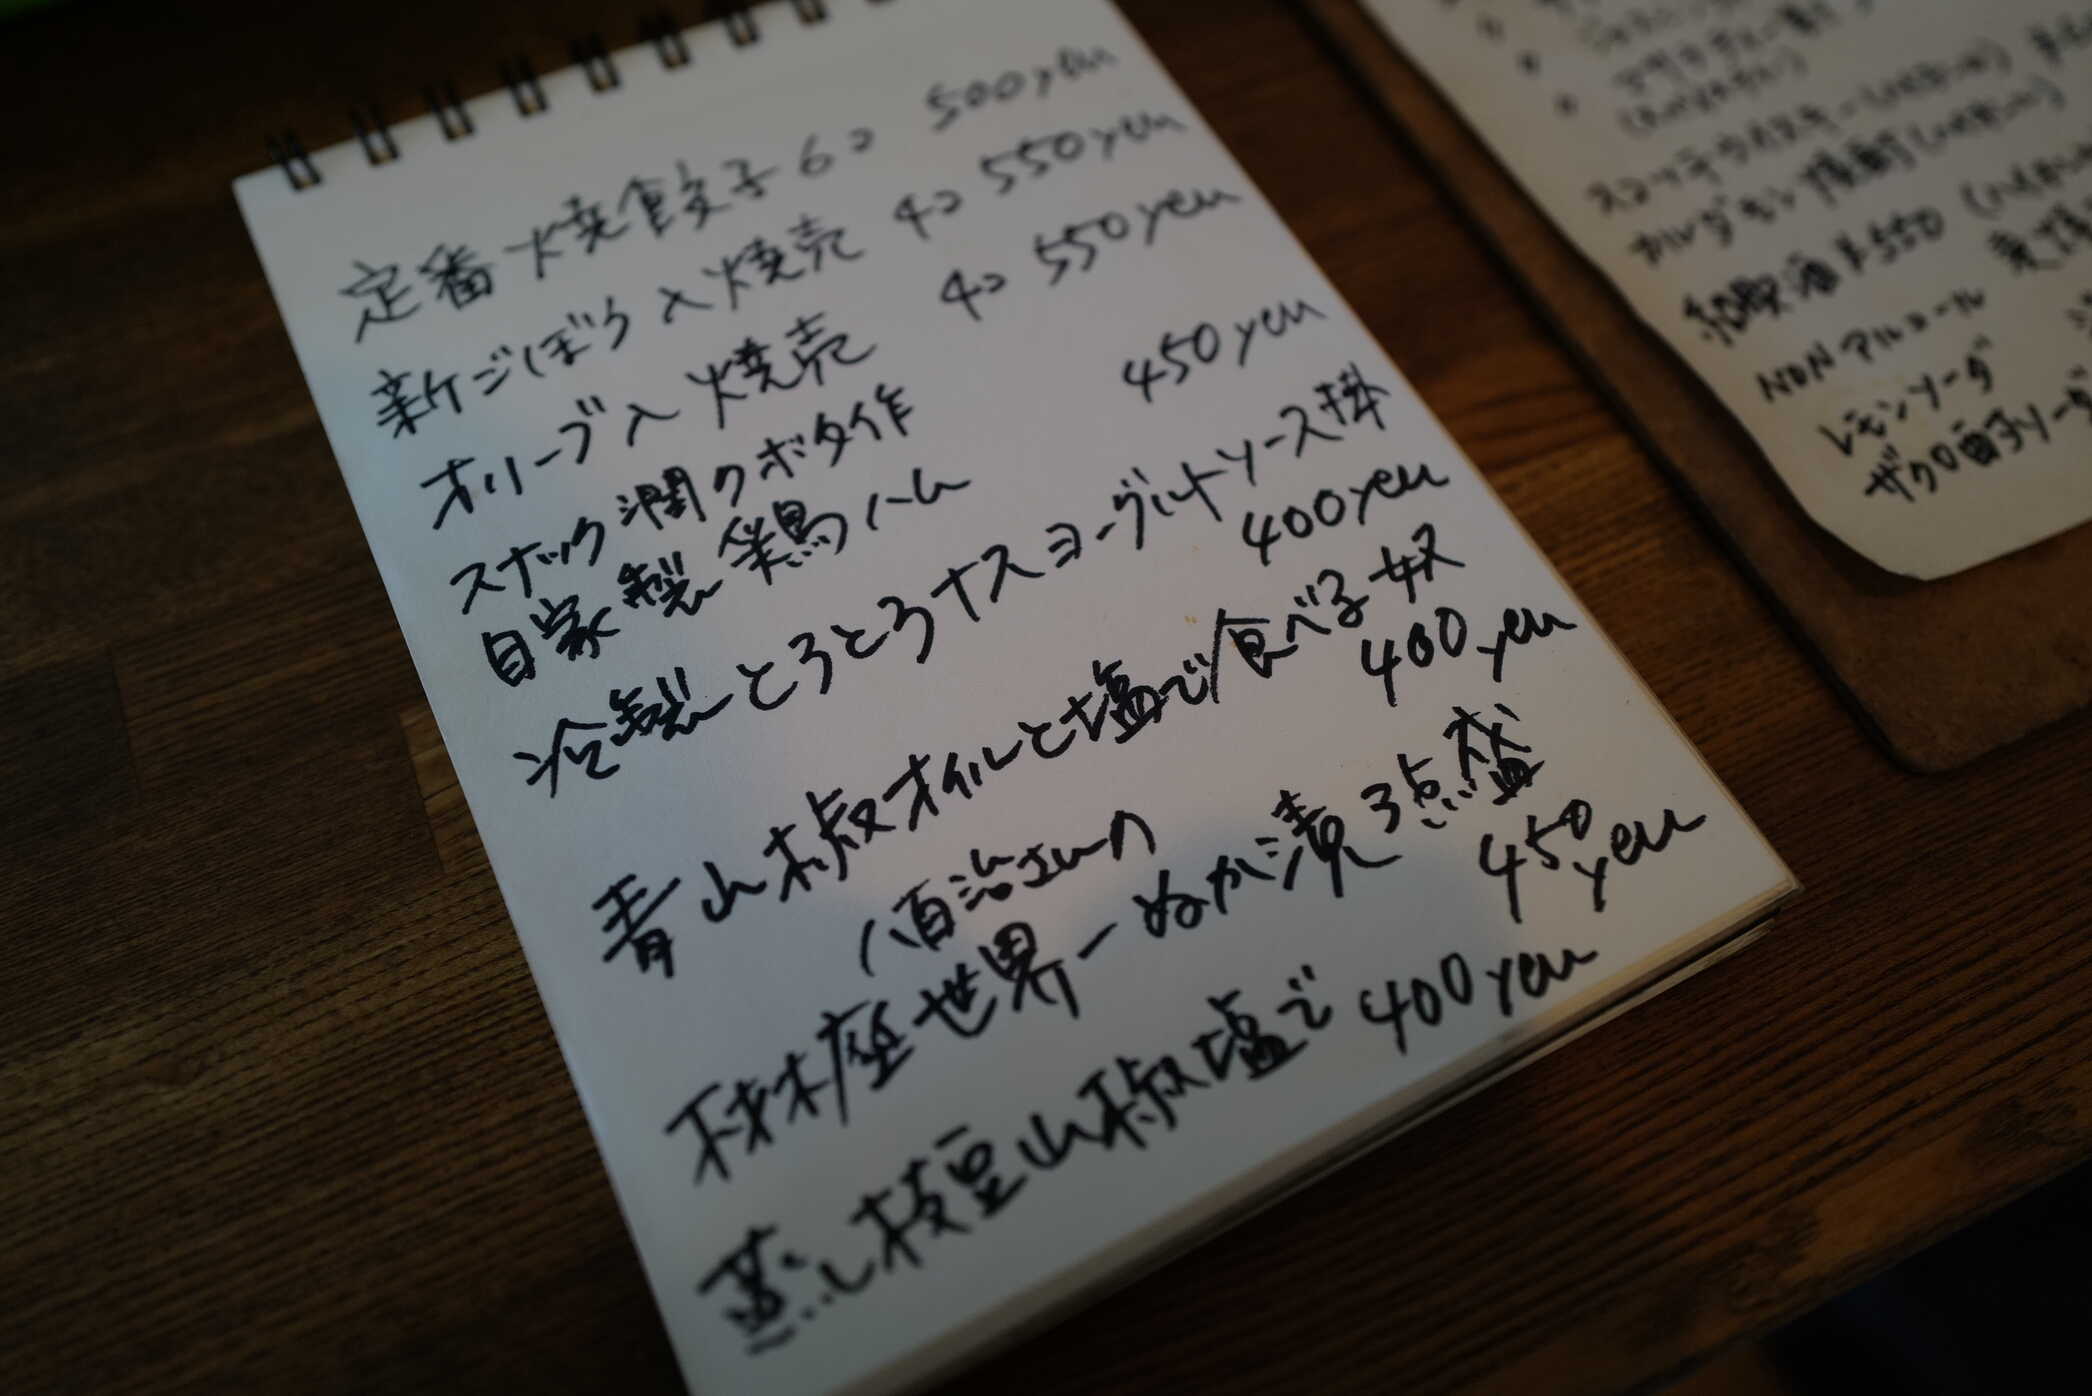 定番焼餃子6コ 500yen
新ごぼう入焼売 4コ 550yen
オリーブ入焼売 4コ 550yen
スナック潤クボタ作
自家製鶏ハム 450yen
冷製とろとろナスヨーグルトソース掛
400yen
青山椒オイルと塩で食べる奴
400yen
八百治さんの
秋木屋世界一ぬか漬3点盛
450yen
蒸し枝豆山椒塩で 400yen
スコッチウイスキー(ハイボール)
カルダモン焼酎(ハイボール)
紹興酒 ¥550
NONアルコール
レモンソーダ
ザクロ